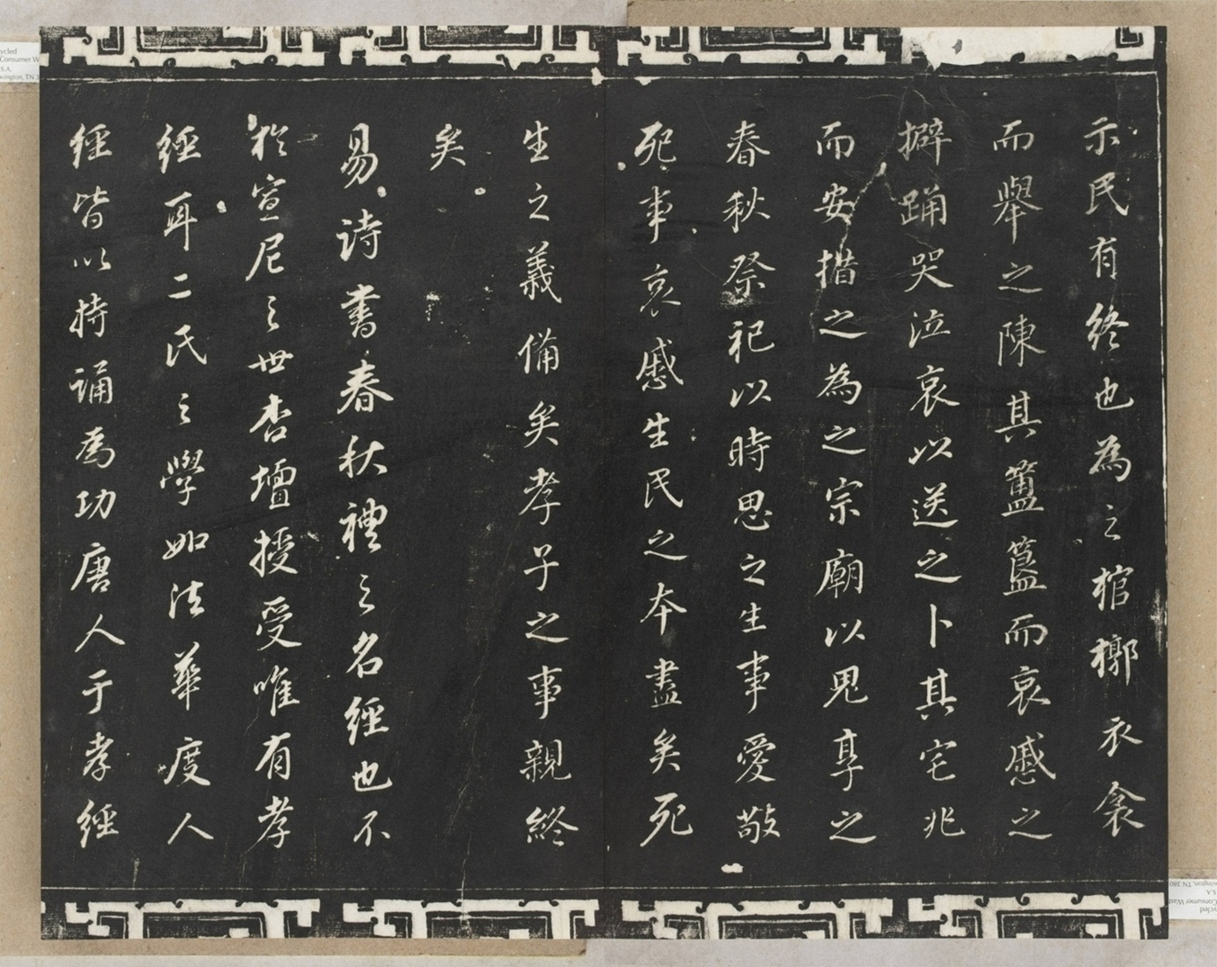 示民有終也為之棺槨衣衾
而舉之陳其簠簋而哀慼之
擗踊哭泣哀以送之卜其宅兆
而安措之為之宗廟以鬼享之
春秋祭祀以時思之生事愛敬
死事哀慼生民之本盡矣死
生之義備矣孝子之事親終
矣
易詩書春秋禮之名經也不
於宣尼之世杏壇授受唯有孝
經耳二氏之學如法華度人
經皆以持誦為功唐人于孝經